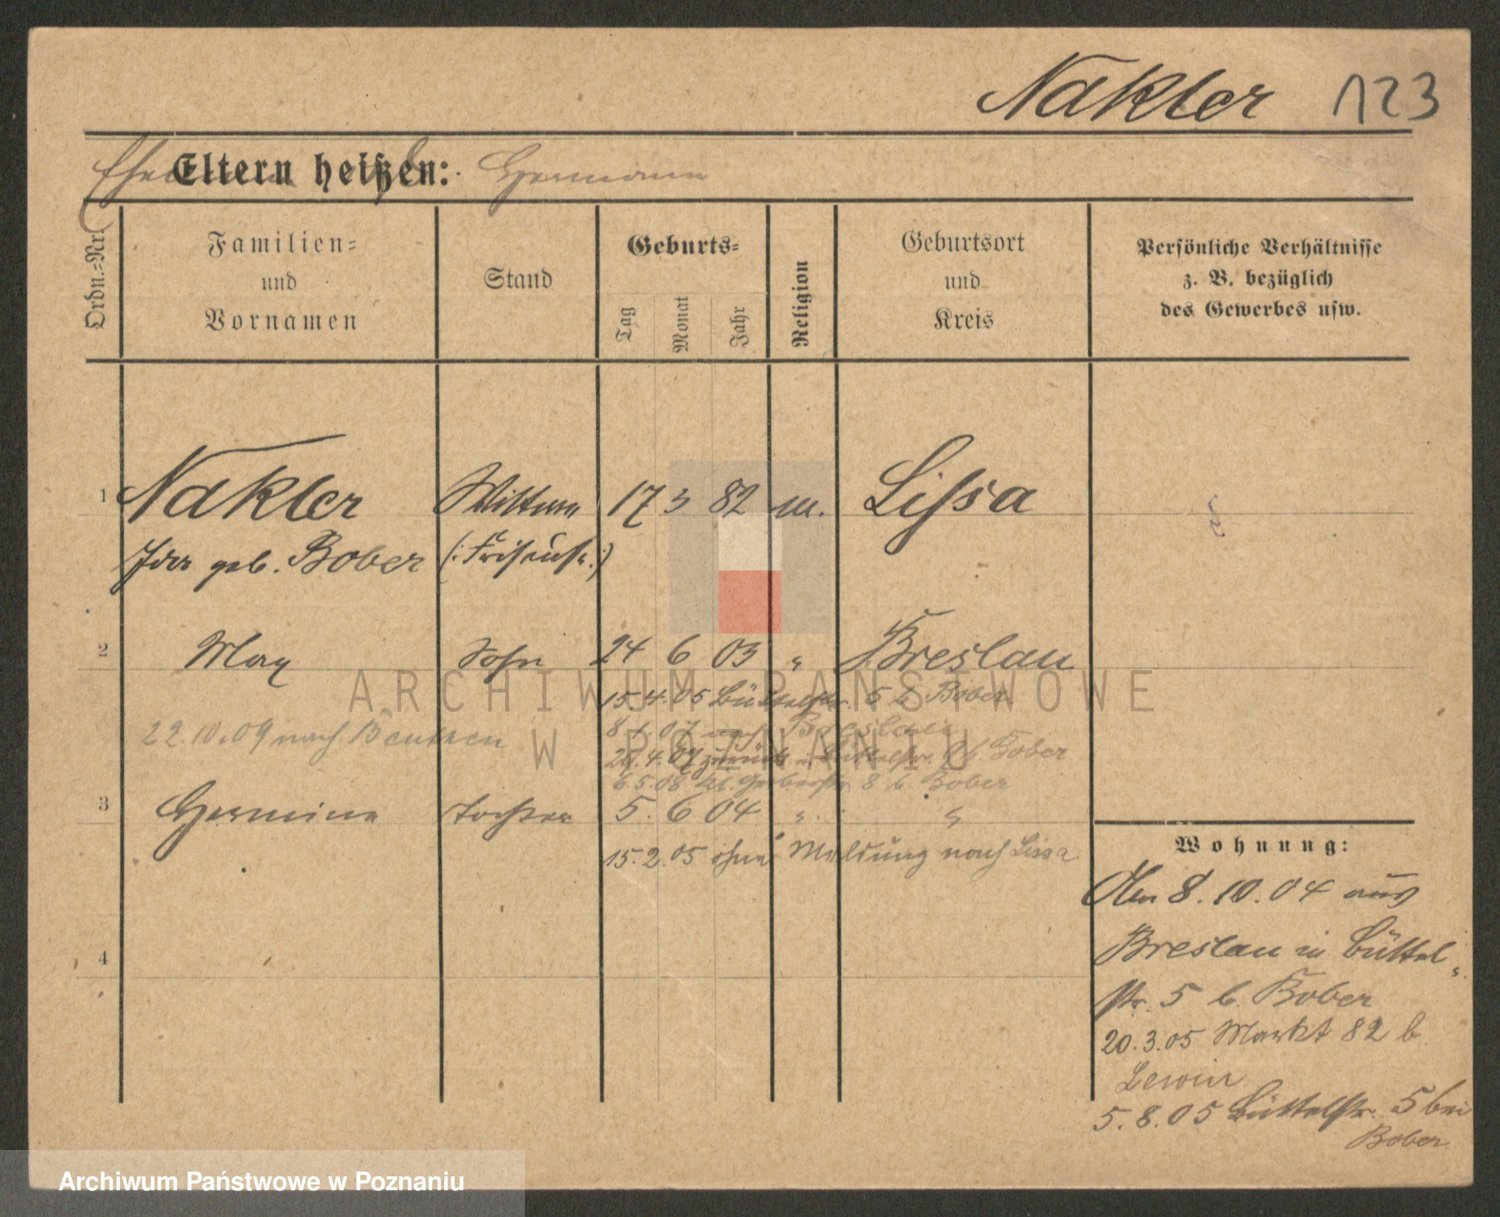 Nakler 123
Eltern heißen: Hermann
Ordn.-Nr.
Familien-
und
Vornamen
Stand
Geburts-
Tag
Monat
Jahr
Religion
Geburtsort
und
Kreis
Persönliche Verhältnisse
z. B. bezüglich
des Gewerbes usw.
1 Nakler 17 3 82 m. Lissa
geb. Bober (: Friseuse :)
2 Max Sohn 24 6 03 " Breslau
15.4.05 Büttelstr. 5 b. Bober
8.1.07 nach Breslau
22.10.09 nach Beuthen
29.4.07 zurück Büttelstr. b. Bober
6.5.08 Gerberstr. 8 b. Bober
3 Hermine Tochter 5. 6 04 " "
15.2.05 ohne Meldung nach Lissa
4
Wohnung:
Den 8.10.04 aus
Breslau in Büttel-
str. 5 b. Bober
20.3.05 Markt 82 b
Lewin
5.8.05 Büttelstr. 5 bei
Bober
ARCHIWUM PAŃSTWOWE
W POZNANIU
Archiwum Państwowe w Poznaniu